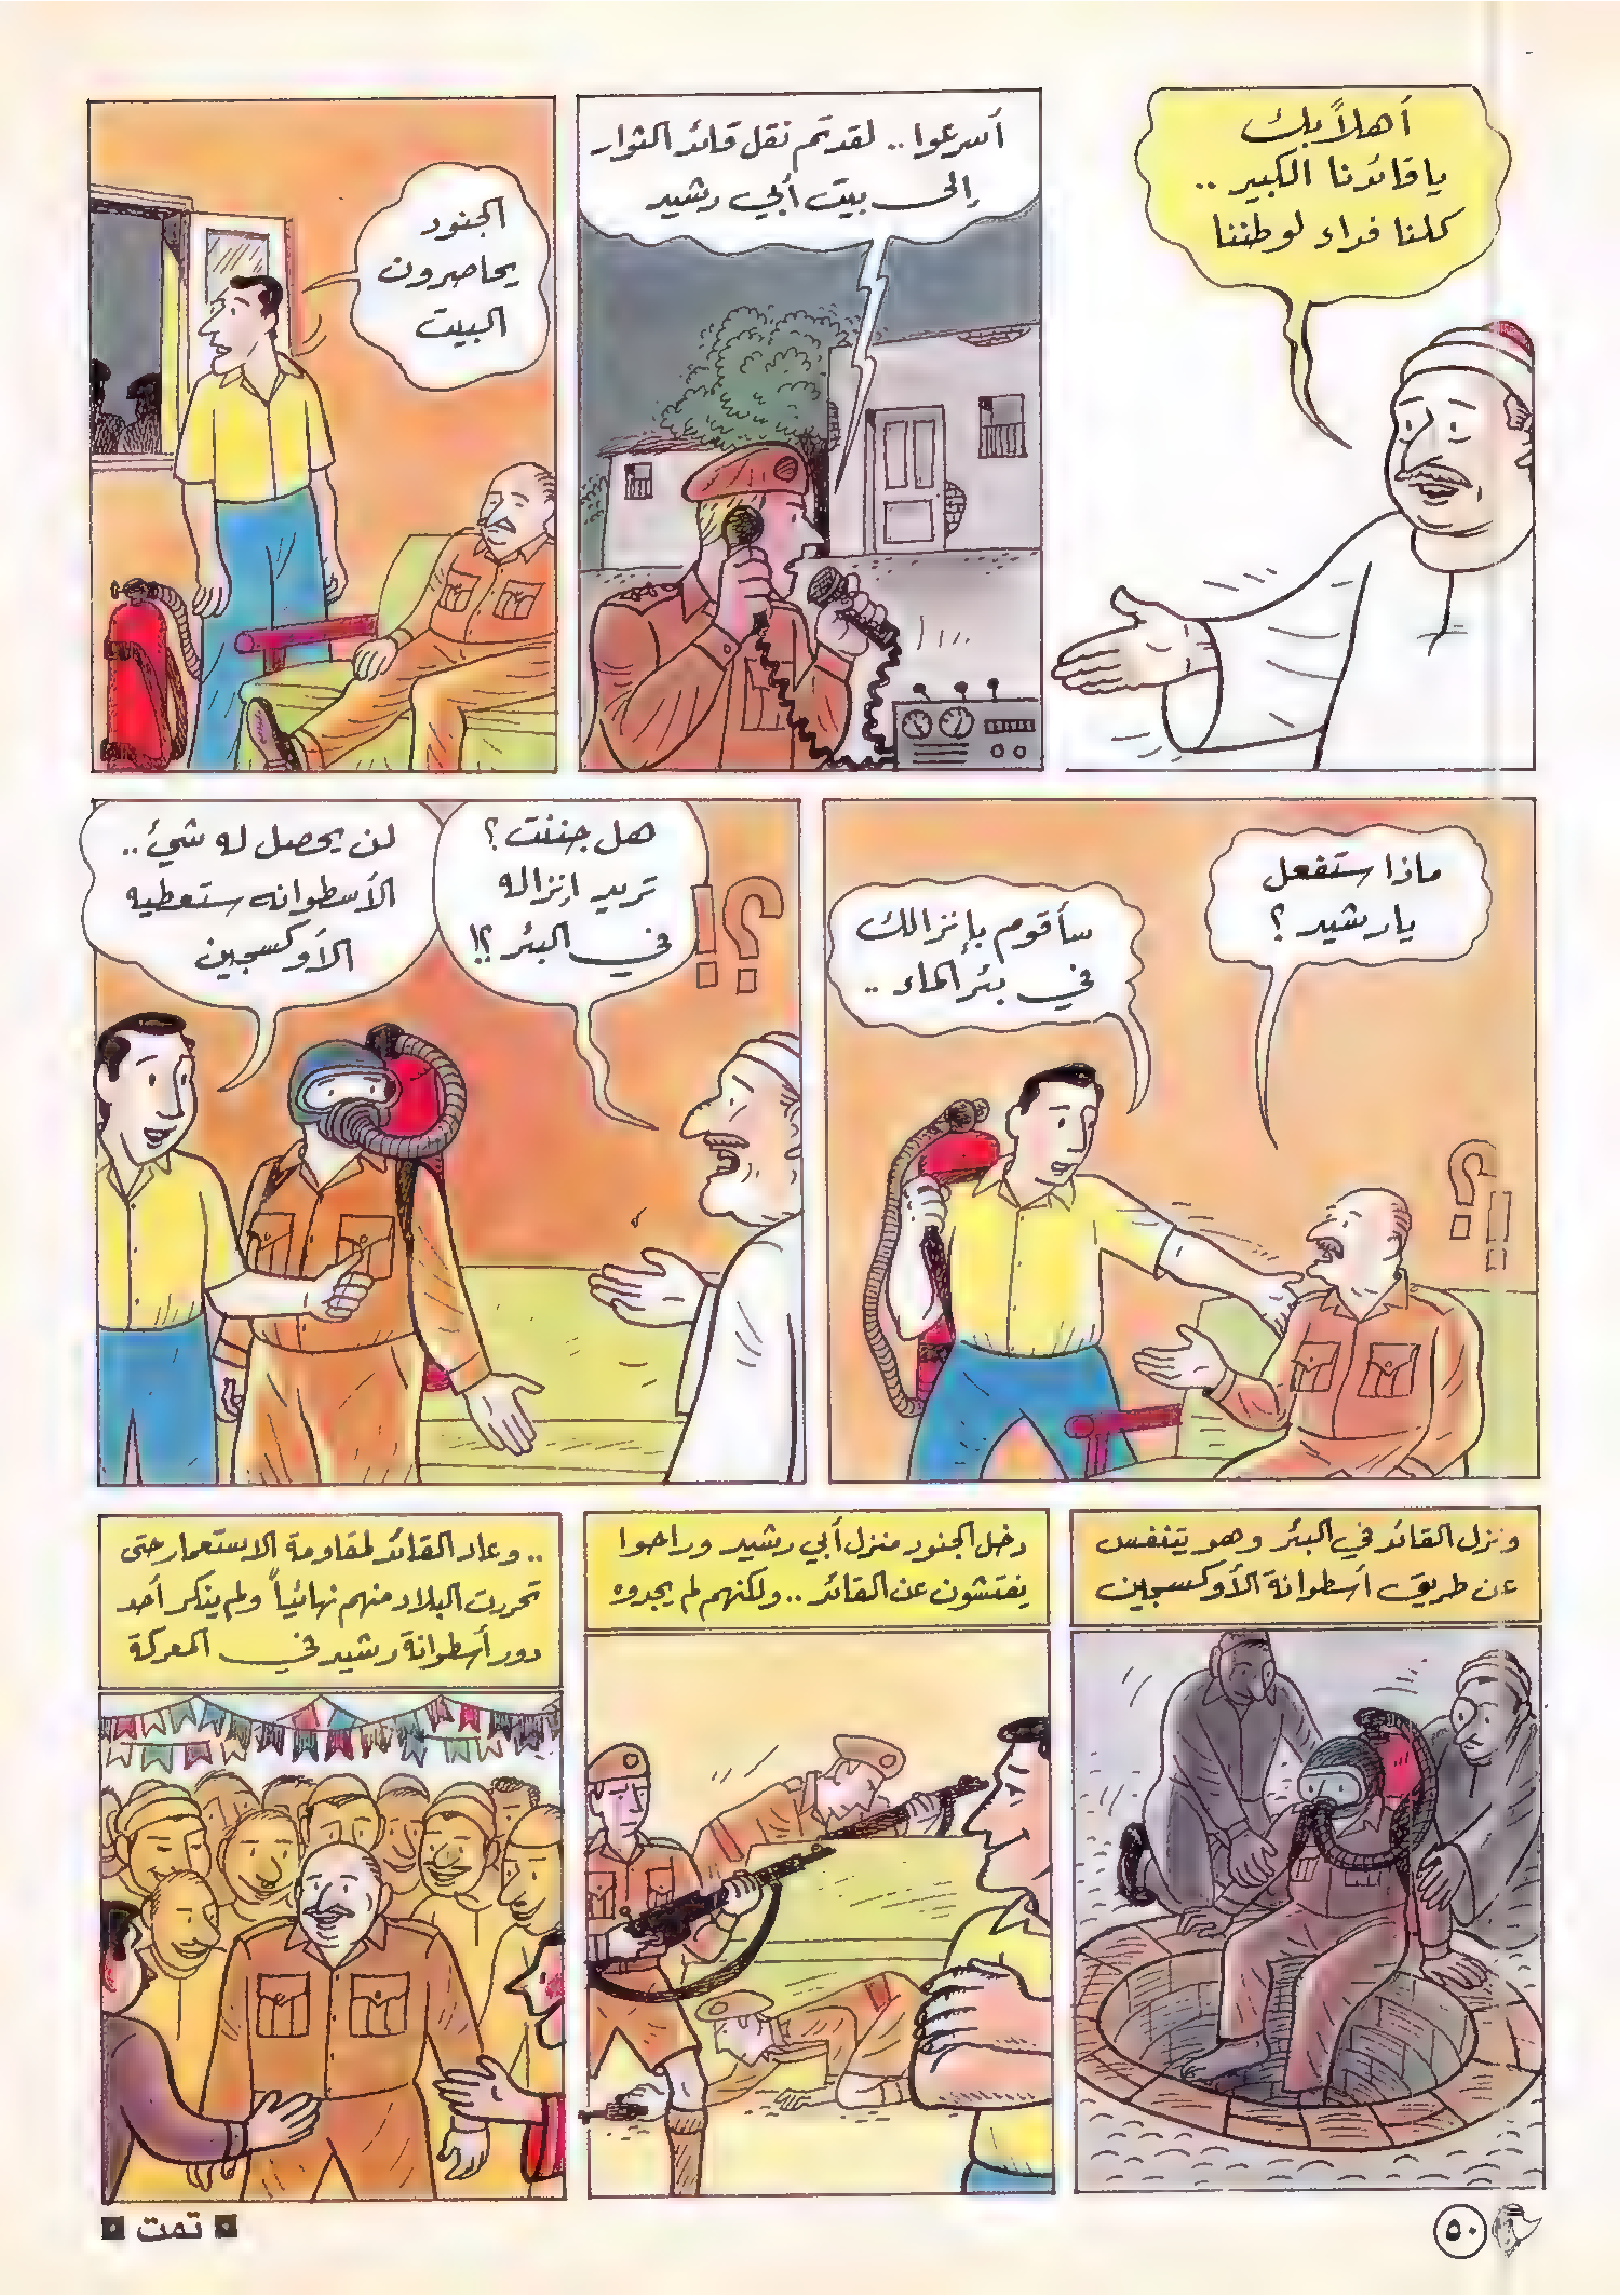 أهلاً بك
يا قائدنا الكبير ..
كلنا فداء لوطننا
أسرعوا .. لقد تم نقل قائد الثوار
إلى بيت أبي رشيد
الجنود
يحاصرون
البيت
ماذا ستفعل
يا رشيد ؟
سأقوم بإنزالك
في بئر الماء ..
؟!
هل جننت ؟
تريد إنزاله
في البئر ؟!
؟!
لن يحصل له شيئ ..
الأسطوانه ستعطيه
الأوكسجين
ونزل القائد في البئر وهو يتنفس
عن طريق أسطوانة الأوكسجين
دخل الجنود منزل أبي رشيد وراحوا
يفتشون عن القائد .. ولكنهم لم يجدوه
.. وعاد القائد لمقاومة الاستعمار حتى
تحررت البلاد منهم نهائياً ولم ينكر أحد
دور أسطوانة رشيد في المعركة
تمت
٥٠